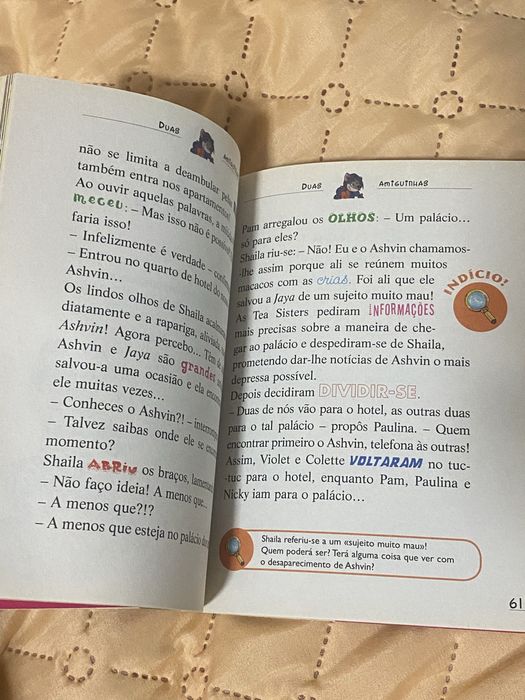 DUAS
não se limita a deambular pelo
também entra nos apartamentos!
Ao ouvir aquelas palavras, a
– Mas isso não é possível
faria isso!
– Infelizmente é verdade –
– Entrou no quarto de hotel do
Ashvin...
Os lindos olhos de Shaila
diatamente e a rapariga,
Ashvin! Agora percebo...
Ashvin e Jaya são grandes
salvou-a uma ocasião e ela
ele muitas vezes...
– Conheces o Ashvin?! –
– Talvez saibas onde ele se
momento?
Shaila ABRIU os braços,
– Não faço ideia! A menos que...
– A menos que?!?
– A menos que esteja no palácio
DUAS AMIGUINHAS
Pam arregalou os OLHOS: – Um palácio...
só para eles?
Shaila riu-se: – Não! Eu e o Ashvin chamamos-
-lhe assim porque ali se reúnem muitos
macacos com as crias. Foi ali que ele
salvou a Jaya de um sujeito muito mau!
As Tea Sisters pediram INFORMAÇÕES
mais precisas sobre a maneira de che-
gar ao palácio e despediram-se de Shaila,
prometendo dar-lhe notícias de Ashvin o mais
depressa possível.
Depois decidiram DIVIDIR-SE.
– Duas de nós vão para o hotel, as outras duas
para o tal palácio – propôs Paulina. – Quem
encontrar primeiro o Ashvin, telefona às outras!
Assim, Violet e Colette VOLTARAM no tuc-
-tuc para o hotel, enquanto Pam, Paulina e
Nicky iam para o palácio...
INDÍCIO!
Shaila referiu-se a um «sujeito muito mau»!
Quem poderá ser? Terá alguma coisa que ver com
o desaparecimento de Ashvin?
61